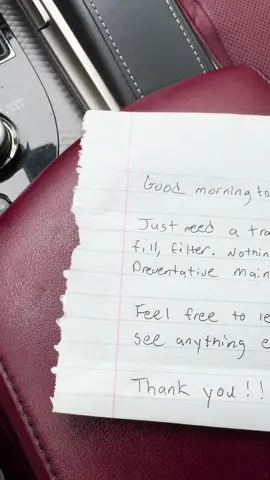 Good morning to
Just need a
fill, filter.
Preventative
Feel free to
see anything
Thank you!!